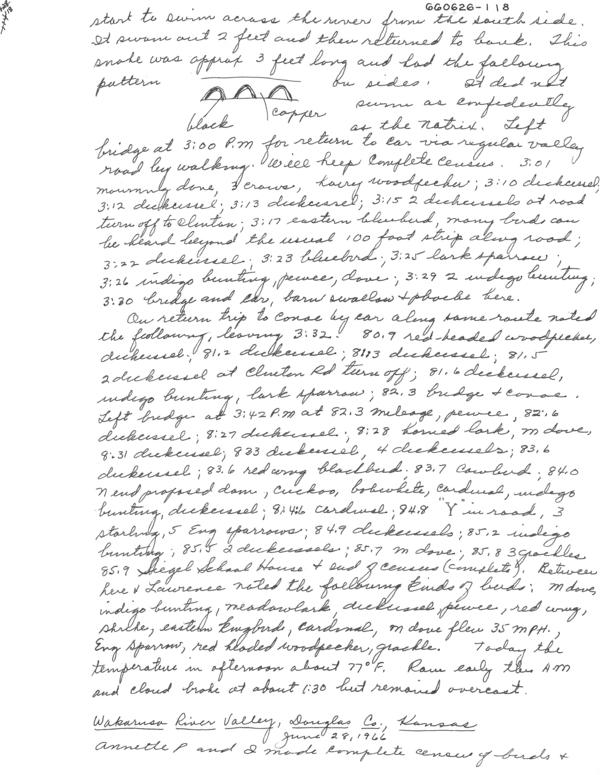 GG0626-118
start to swim across the river from the south side.
It swam out 2 feet and then returned to bank. This
snake was approx 3 feet long and had the following
pattern on sides. It did not
swim as confidently
black copper as the Natrix. Left
bridge at 3:00 P.M for return to car via regular valley
road by walking. Will keep complete census. 3:01
mourning dove, 3 crows, hairy woodpecker; 3:10 dickcissel;
3:12 dickcissel; 3:13 dickcissel; 3:15 2 dickcissels at road
turn off to Clinton; 3:17 eastern bluebird, many birds can
be heard beyond the usual 100 foot strip along road;
3:22 dickcissel; 3:23 bluebird; 3:25 lark sparrow;
3:26 indigo bunting, pewee, dove; 3:29 2 indigo bunting;
3:30 bridge and car, barn swallow & phoebe here.
On return trip to canoe by car along same route noted
the following, leaving 3:32. 80.9 red-headed woodpecker,
dickcissel; 81.2 dickcissel; 81.3 dickcissel; 81.5
2 dickcissel at Clinton Rd turn off; 81.6 dickcissel,
indigo bunting, lark sparrow; 82.3 bridge & canoe.
Left bridge at 3:42 P.M at 82.3 mileage, pewee, 82.6
dickcissel; 8:27 dickcissel; 8:28 horned lark, m dove,
8:31 dickcissel; 833 dickcissel, 4 dickcissels; 83.6
dickcissel; 83.6 red wing blackbird; 83.7 cowbird; 84.0
N end proposed dam, cuckoo, bobwhite, cardinal, indigo
bunting, dickcissel; 84.6 cardinal; 84.8 "Y" in road, 3
starling, 5 Eng sparrows; 84.9 dickcissels; 85.2 indigo
bunting; 85.5 2 dickcissels; 85.7 m dove; 85.8 3 grackles
85.9 Siegel School House & end of census (complete). Between
here & Lawrence noted the following kinds of birds: m dove,
indigo bunting, meadowlark, dickcissel, pewee, red wing,
shrike, eastern kingbird, cardinal, m dove flew 35 MPH.,
Eng sparrow, red headed woodpecker, grackle. Today the
temperature in afternoon about 77° F. Rain early this AM
and cloud broke at about 1:30 but remained overcast.
Wakarusa River Valley, Douglas Co., Kansas
June 28, 1966
Annette P and I made complete census of birds &